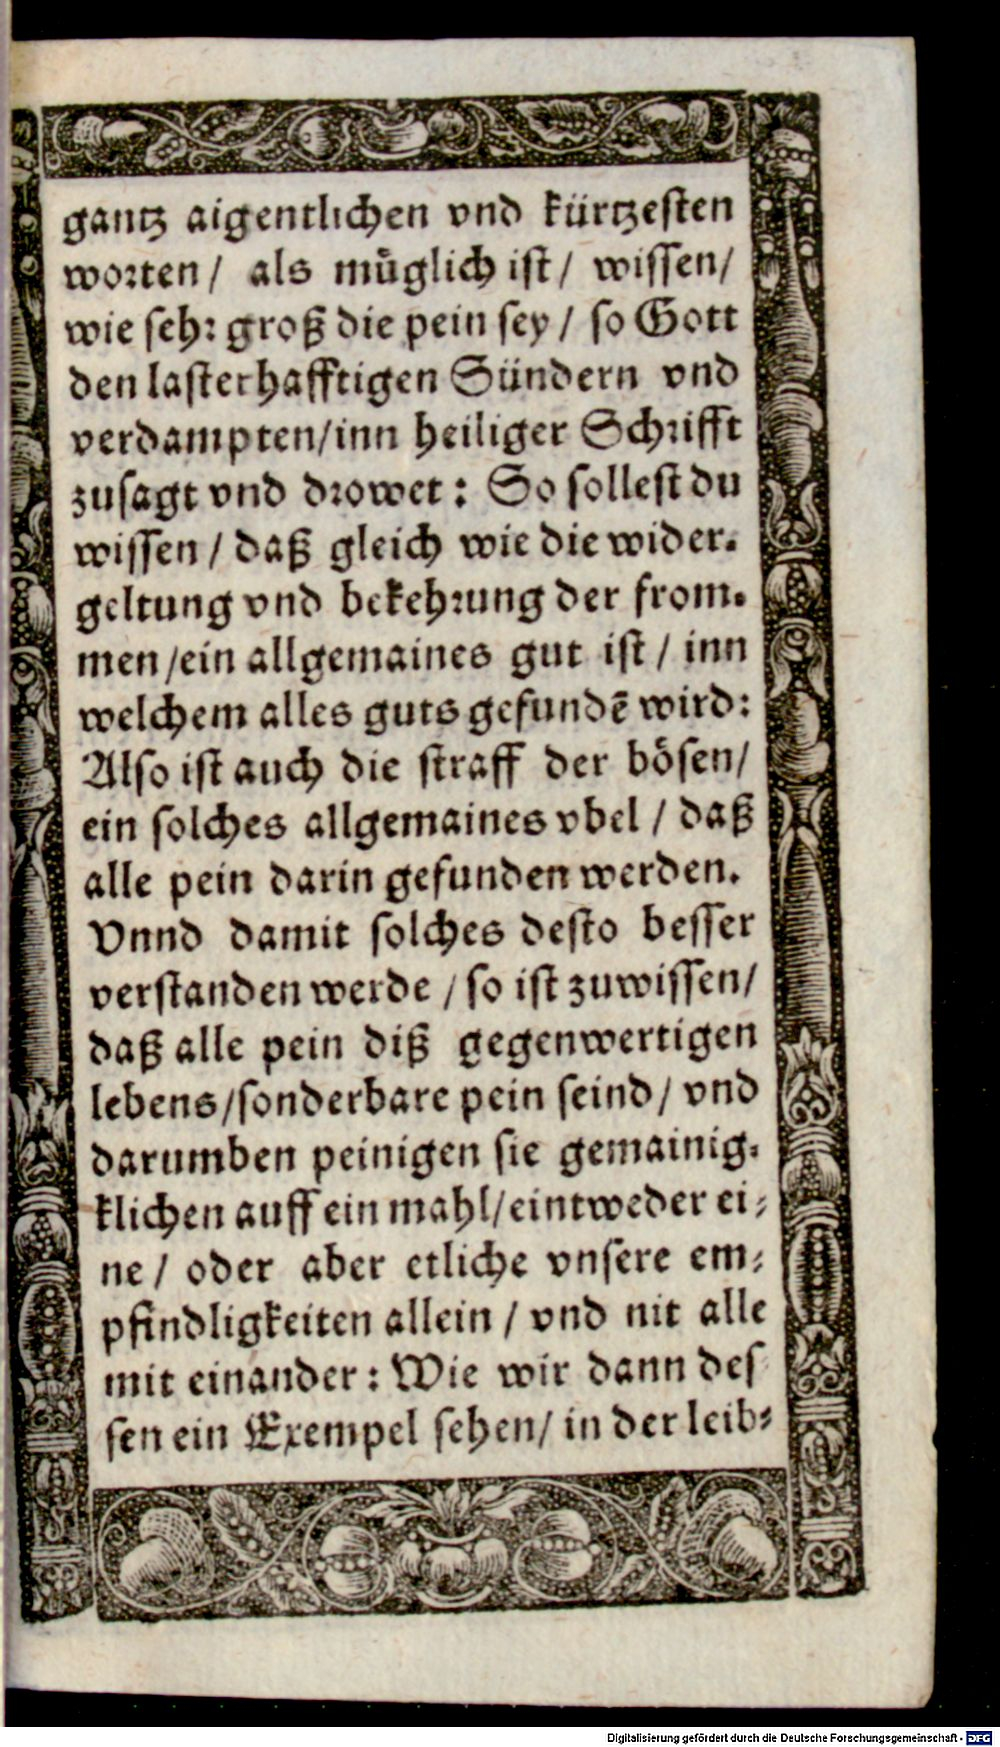 gantz aigentlichen vnd kürtzesten
worten / als müglich ist / wissen /
wie sehr groß die pein sey / so Gott
den lasterhafftigen Sündern vnd
verdampten / inn heiliger Schrifft
zusagt vnd drowet : So sollest du
wissen / daß gleich wie die wider-
geltung vnd bekehrung der from-
men / ein allgemaines gut ist / inn
welchem alles guts gefundē wird :
Also ist auch die straff der bösen /
ein solches allgemaines vbel / daß
alle pein darin gefunden werden.
Vnnd damit solches desto besser
verstanden werde / so ist zuwissen /
daß alle pein diß gegenwertigen
lebens / sonderbare pein seind / vnd
darumben peinigen sie gemainig-
klichen auff ein mahl / eintweder ei-
ne / oder aber etliche vnsere em-
pfindligkeiten allein / vnd nit alle
mit einander : Wie wir dann des
sen ein Exempel sehen / in der leib-
Digitalisierung gefördert durch die Deutsche Forschungsgemeinschaft - DFG